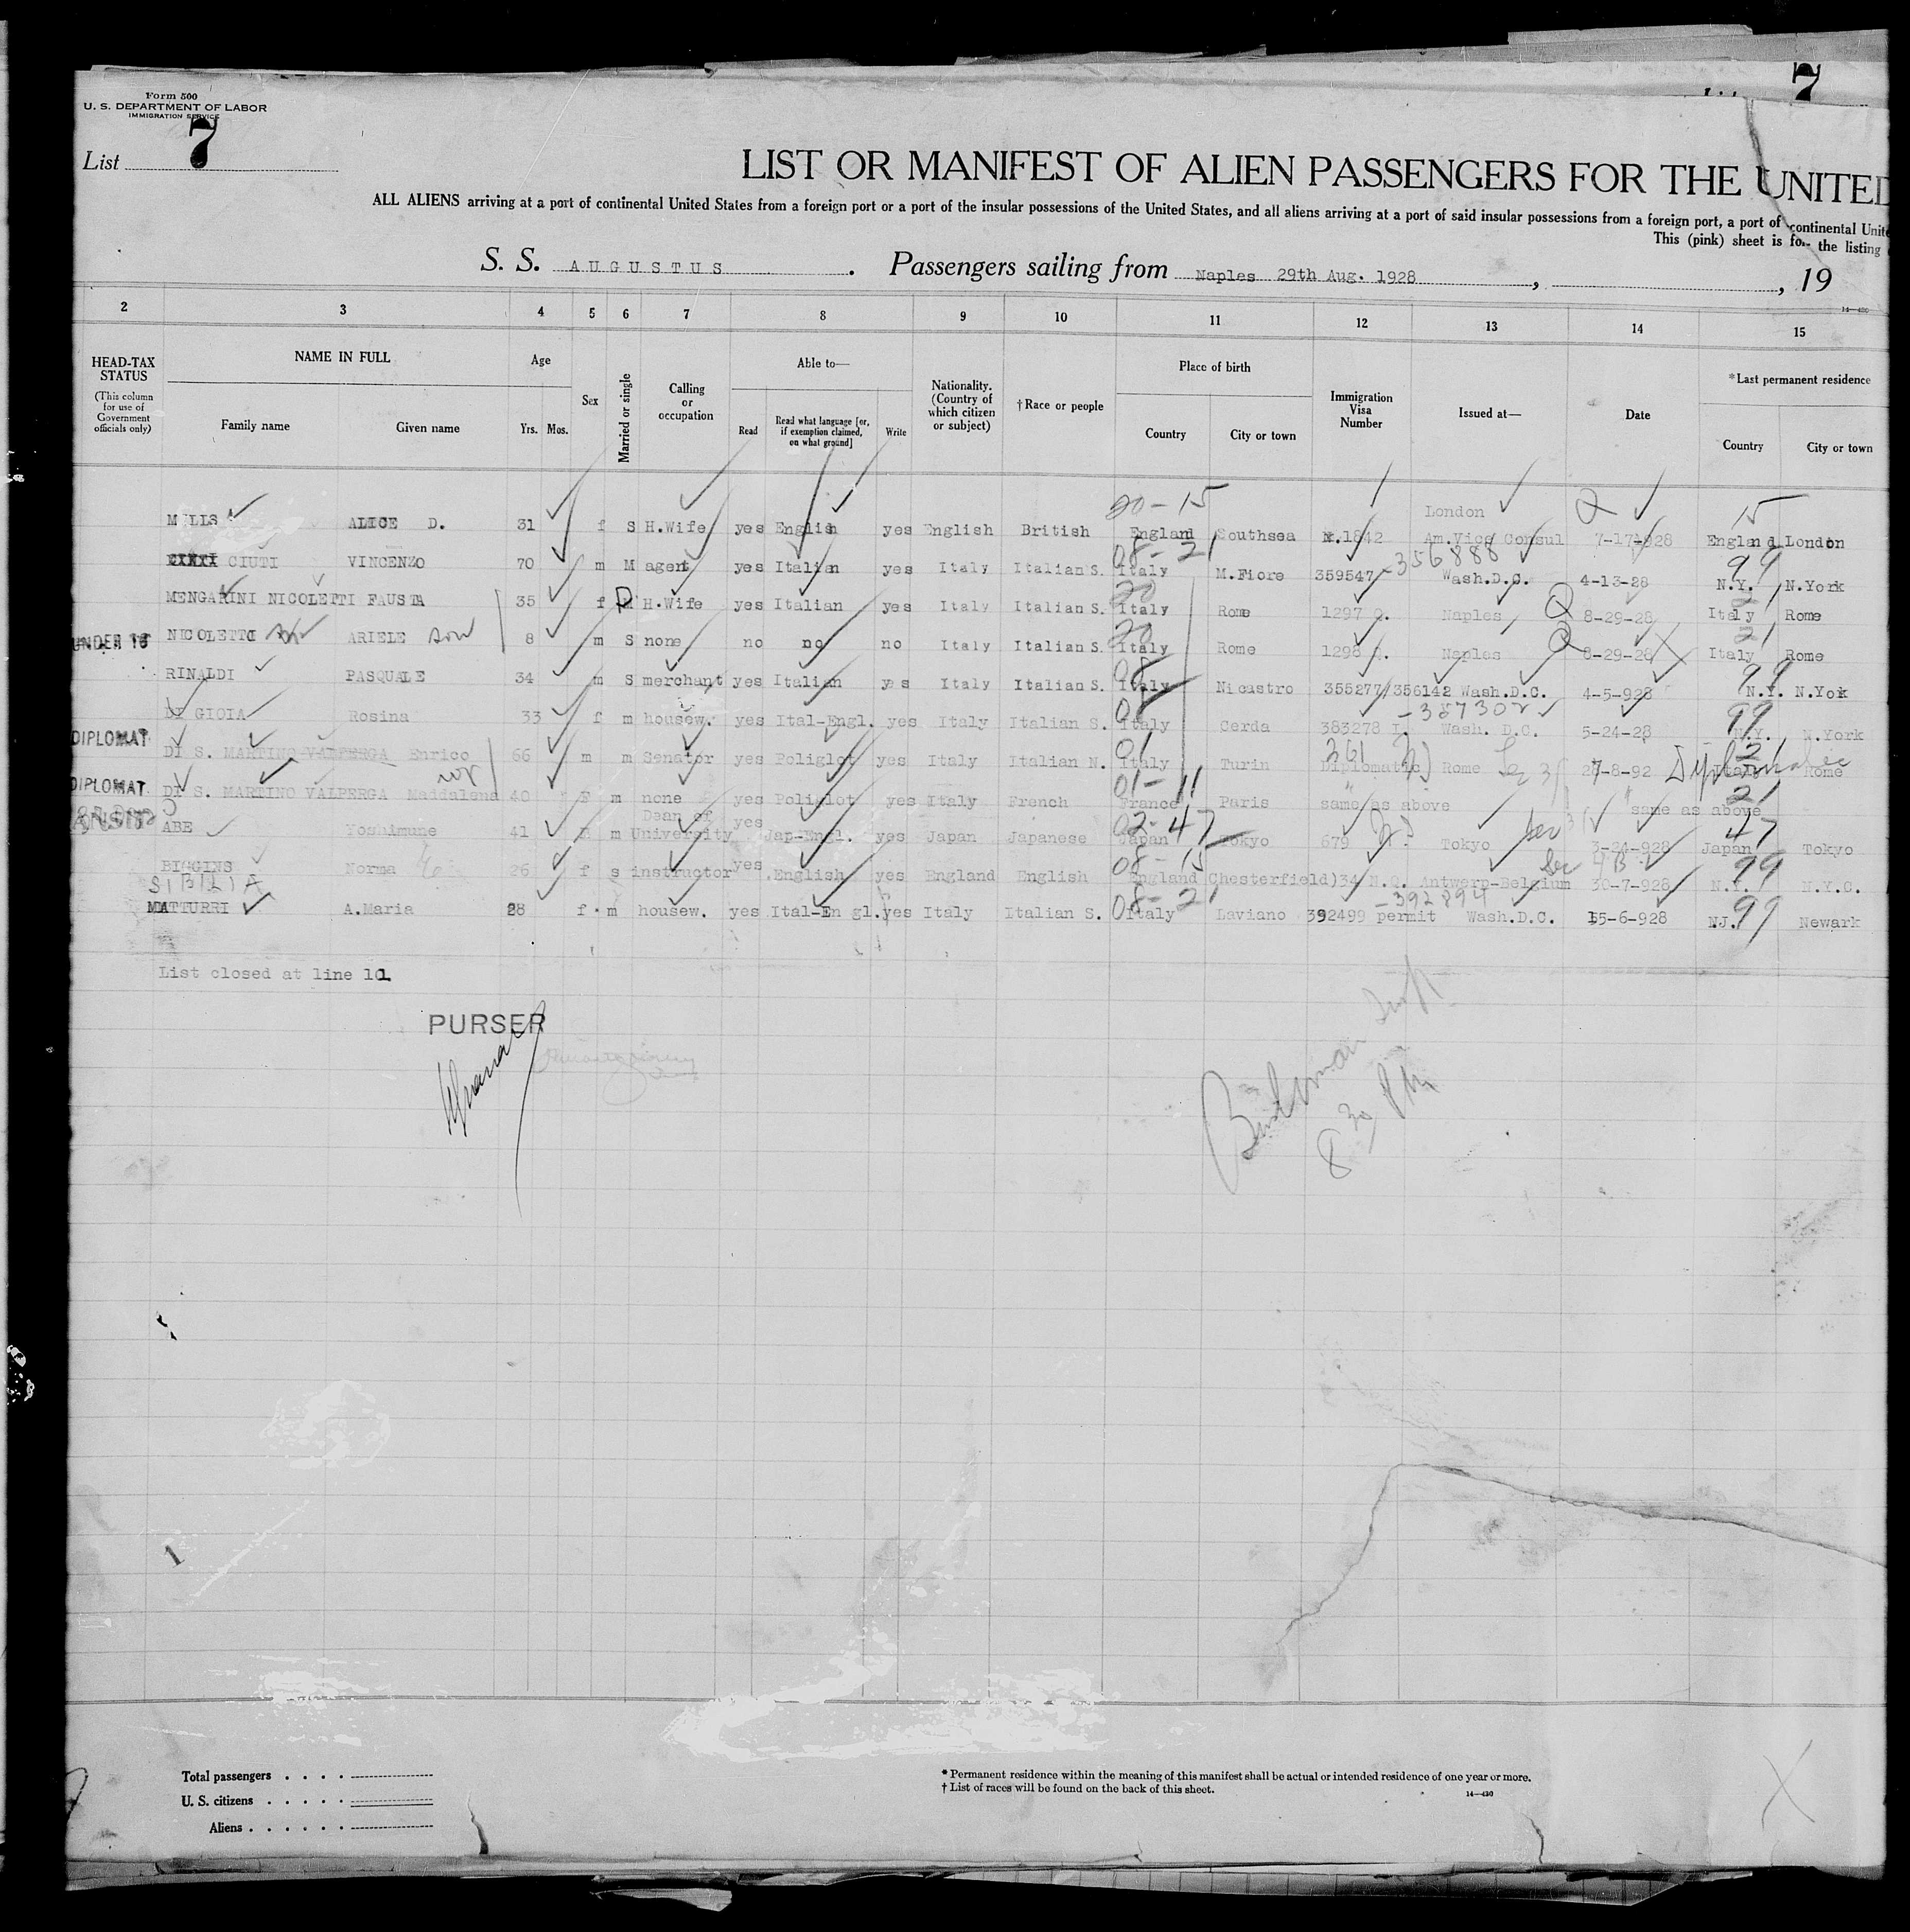 Form 500
U. S. DEPARTMENT OF LABOR
IMMIGRATION SERVICE
7
List 7
LIST OR MANIFEST OF ALIEN PASSENGERS FOR THE UNITED
ALL ALIENS arriving at a port of continental United States from a foreign port or a port of the insular possessions of the United States, and all aliens arriving at a port of said insular possessions from a foreign port, a port of continental
This (pink) sheet is for the listing
S. S. AUGUSTUS . Passengers sailing from Naples 29th Aug. 1928 , , 19
14—430
2 3 4 5 6 7 8 9 10 11 12 13 14 15
HEAD-TAX STATUS (This column for use of Government officials only) NAME IN FULL Family name Given name Age Yrs. Mos. Sex Married or single Calling or occupation Able to— Read Read what language [or, if exemption claimed, on what ground] Write Nationality. (Country of which citizen or subject) †Race or people Place of birth Country City or town Immigration Visa Number Issued at— Date *Last permanent residence Country City or town
20-15 London 15
MILLS ALICE D. 31 f S H.Wife yes English yes English British England Southsea 1842 Am.Vice Consul 7-17-928 England London
08-21 -356888 99
CIUTI VINCENZO 70 m M agent yes Italian yes Italy Italian S. Italy M.Fiore 359547 Wash.D.C. 4-13-28 N.Y. N.York
MENGARINI NICOLETTI FAUSTA 35 f D H.Wife yes Italian yes Italy Italian S. Italy Rome 1297 Q. Naples Q 8-29-28 Italy Rome
UNDER 16 NICOLETTI ARIELE son 8 m S none no no no Italy Italian S. Italy Rome 1298 Q. Naples Q 8-29-28 Italy Rome
RINALDI PASQUALE 34 m S merchant yes Italian yes Italy Italian S. Italy Nicastro 355277/356142 Wash.D.C. 4-5-928 N.Y. N.Yok
DI GIOIA Rosina 33 f m housew. yes Ital-Engl. yes Italy Italian S. Italy Cerda 383278 Wash. D.C. 5-24-28 N.Y. N.York
DIPLOMAT DI S. MARTINO VALPERGA Enrico 66 m m Senator yes Poliglot yes Italy Italian N. Italy Turin Diplomatic Rome 28-8-92 Diplomatic Italy Rome
DIPLOMAT DI S. MARTINO VALPERGA Maddalena 40 m none yes Poliglot yes Italy French France Paris same as above same as above
ABE Yoshimune 41 m Dean of University yes Jap-Engl. yes Japan Japanese Japan Tokyo 679 Tokyo 3-24-928 Japan Tokyo
BIGGINS Norma 26 f s instructor yes English yes England English England Chesterfield) 34 N.Q. Antwerp-Belgium 30-7-928 N.Y. N.Y.C.
SIBILIA 08-21 -392894 99
MATTURRI A.Maria 28 f m housew. yes Ital-En gl. yes Italy Italian S. Italy Laviano 392499 permit Wash.D.C. 15-6-928 N.J. Newark
List closed at line 11
PURSER
8 30 PM
1
Total passengers . . . .
U. S. citizens . . . . .
Aliens . . . . . .
* Permanent residence within the meaning of this manifest shall be actual or intended residence of one year or more.
† List of races will be found on the back of this sheet.
14—430